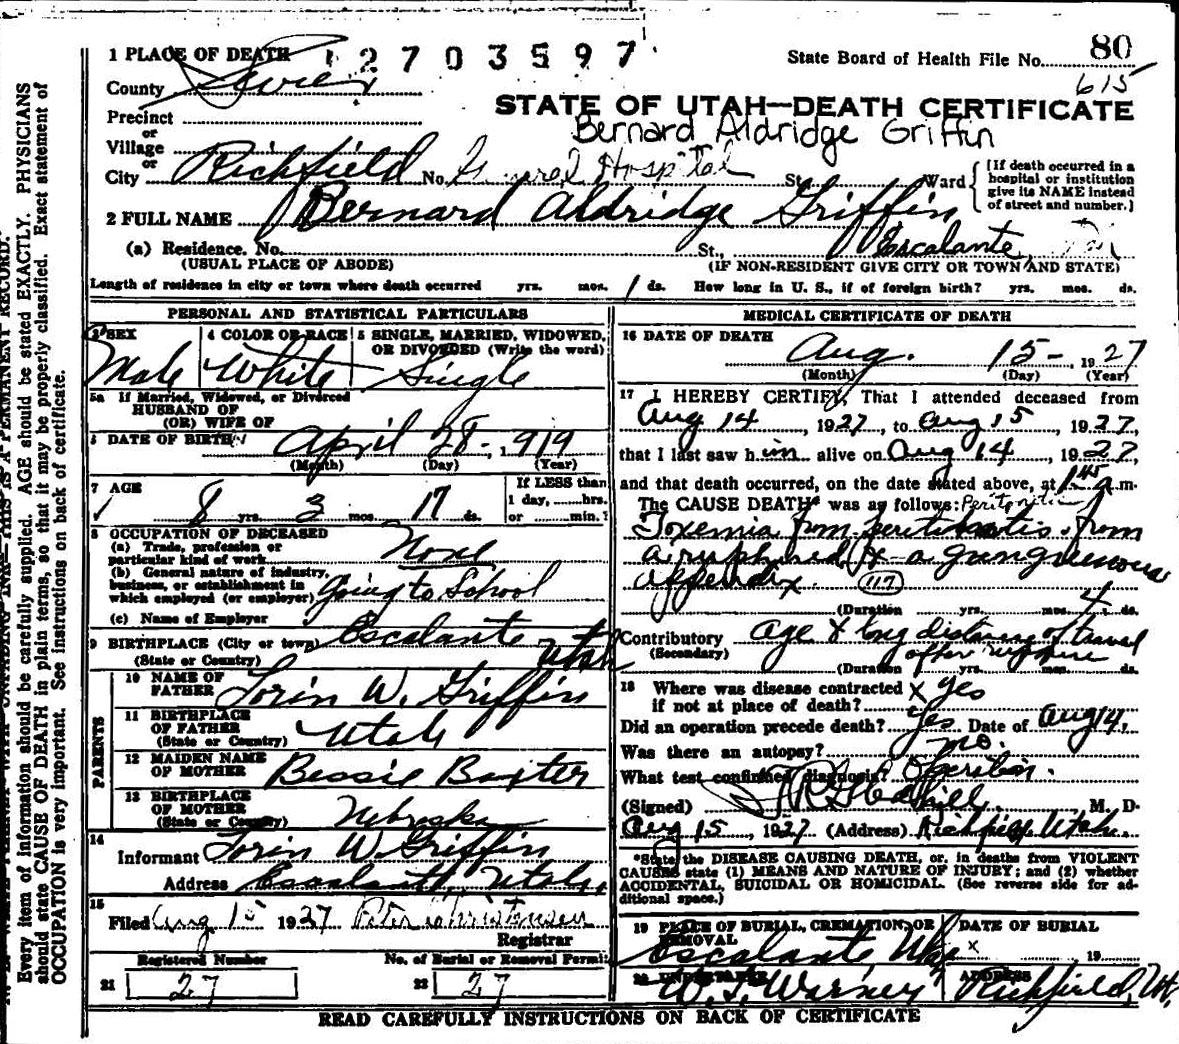 1 PLACE OF DEATH 12703597
State Board of Health File No. 80
615
County Sevier
STATE OF UTAH—DEATH CERTIFICATE
Precinct
Bernard Aldridge Griffin
or
Village
or
City Richfield No. General Hospital St. Ward
[If death occurred in a hospital or institution give its NAME instead of street and number.]
2 FULL NAME Bernard Aldridge Griffin
(a) Residence. No. St., Escalante,
(USUAL PLACE OF ABODE) (IF NON-RESIDENT GIVE CITY OR TOWN AND STATE)
Length of residence in city or town where death occurred yrs. mos. 1 ds. How long in U. S., if of foreign birth? yrs. mos. ds.
PERSONAL AND STATISTICAL PARTICULARS
3 SEX Male
4 COLOR OR RACE White
5 SINGLE, MARRIED, WIDOWED, OR DIVORCED (Write the word) Single
5a If Married, Widowed, or Divorced
HUSBAND OF
(OR) WIFE OF
6 DATE OF BIRTH April 28-, 1919
(Month) (Day) (Year)
7 AGE 8 yrs. 3 mos. 17 ds.
If LESS than
1 day, ......hrs.
or ........min.?
8 OCCUPATION OF DECEASED
(a) Trade, profession or
particular kind of work None
(b) General nature of industry,
business, or establishment in
which employed (or employer) going to School
(c) Name of Employer
9 BIRTHPLACE (City or town) Escalante
(State or Country) Utah
PARENTS
10 NAME OF
FATHER Lorin W. Griffin
11 BIRTHPLACE
OF FATHER
(State or Country) Utah
12 MAIDEN NAME
OF MOTHER Bessie Baxter
13 BIRTHPLACE
OF MOTHER
(State or Country) Nebraska
14
Informant Lorin W. Griffin
Address Escalante, Utah,
15
Filed Aug 15 1927 Peter Christensen
Registrar
Registered Number No. of Burial or Removal Permit
21 27 22 27
MEDICAL CERTIFICATE OF DEATH
16 DATE OF DEATH Aug. 15- 1927
(Month) (Day) (Year)
17 I HEREBY CERTIFY, That I attended deceased from
Aug 14, 1927, to Aug 15, 1927,
that I last saw him alive on Aug 14, 1927,
and that death occurred, on the date stated above, at 1:45 a.m.
The CAUSE DEATH* was as follows: Peritonitis
Toxemia from peritonitis from
a ruptured & a gangrenous
appendix. (117)
(Duration yrs. mos. 4 ds.
Contributory Age & long distance of travel
(Secondary) after rupture
(Duration yrs. mos. ds.
18 Where was disease contracted x yes
if not at place of death?
Did an operation precede death? Yes Date of Aug 14,
Was there an autopsy? no.
What test confirmed diagnosis? Operation.
(Signed) M. D.
Aug 15, 1927 (Address) Richfield, Utah.
*State the DISEASE CAUSING DEATH, or, in deaths from VIOLENT
CAUSES state (1) MEANS AND NATURE OF INJURY; and (2) whether
ACCIDENTAL, SUICIDAL OR HOMICIDAL. (See reverse side for ad-
ditional space.)
19 PLACE OF BURIAL, CREMATION, OR
REMOVAL
Escalante, Utah
DATE OF BURIAL
x 19
20 UNDERTAKER
W. I. Warney
ADDRESS
Richfield, Ut.
READ CAREFULLY INSTRUCTIONS ON BACK OF CERTIFICATE
Every item of information should be carefully supplied. AGE should be stated EXACTLY. PHYSICIANS
should state CAUSE OF DEATH in plain terms, so that it may be properly classified. Exact statement of
OCCUPATION is very important. See instructions on back of certificate.